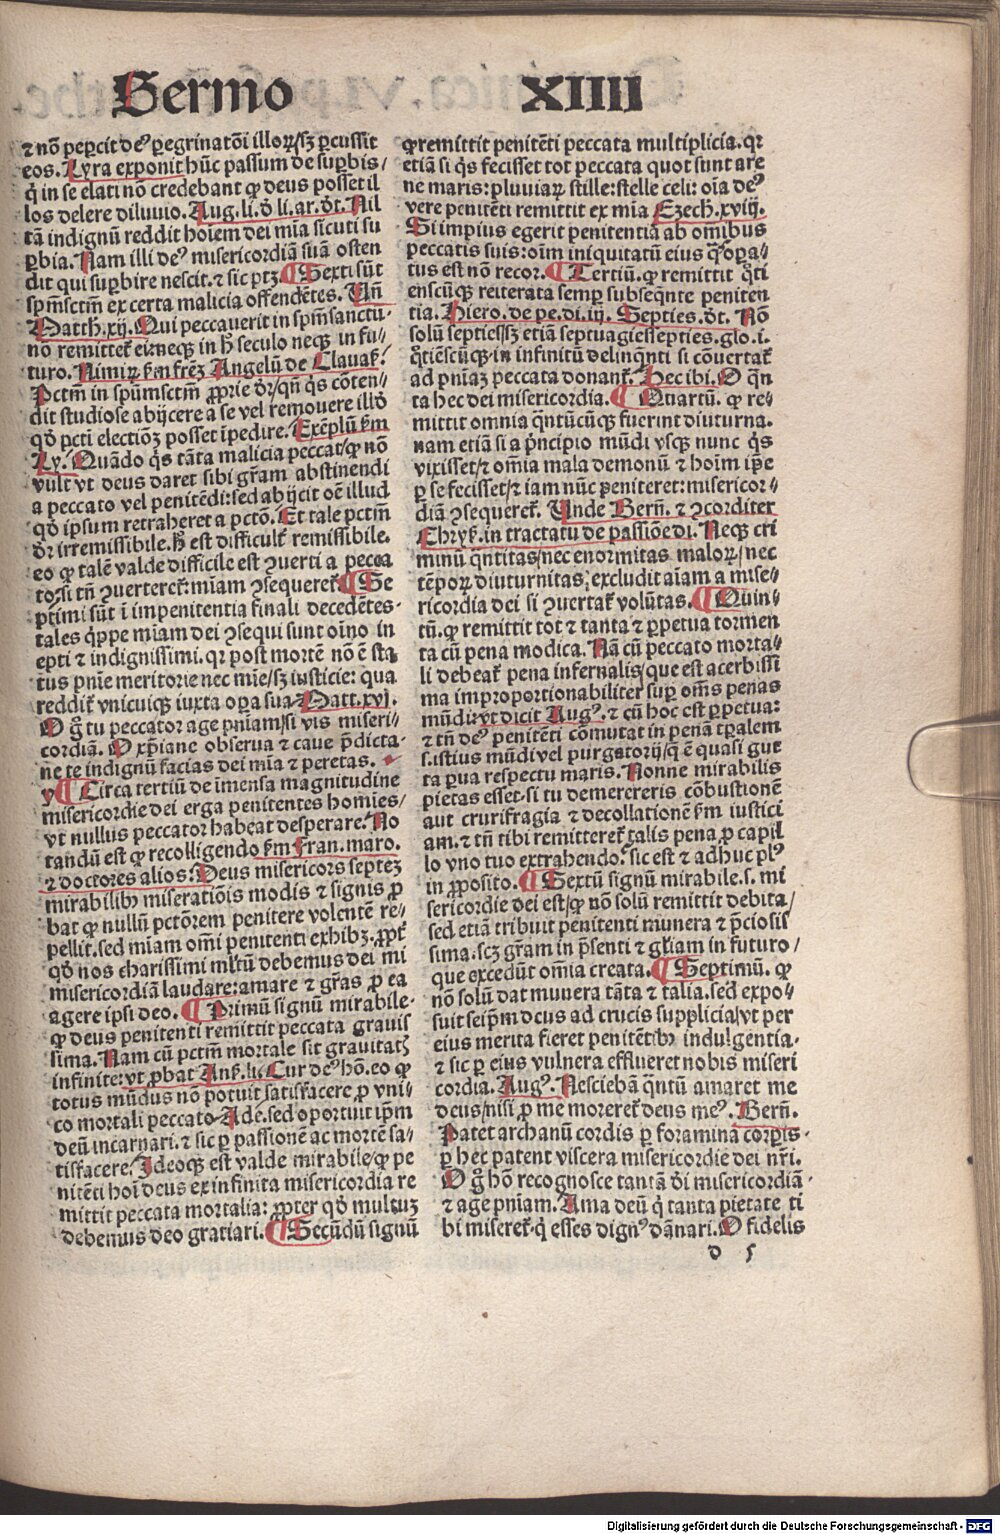 Sermo XIIII
⁊ nō peꝑcit deꝰ ꝑegrinatōi illoꝝ/sꝫ ꝑcussit
eos. Lyra exponit hūc passum de suꝑbis/
q̇ in se elati nō credebant ꝙ deus posset il
los delere diluuio. Aug. li. ð li. ar. ð̄t. Nil
tā indignū reddit hoīem dei mīa sicuti su
ꝑbia. Nam illi deꝰ misericordiā suā osten
dit qui suꝑbire nescit. ⁊ sic ptꝫ. ¶ Sexti sūt
spm̄sctm̄ ex certa malicia offendētes. Vn̄
Matth. xij. Qui peccauerit in spm̄sanctū.
nō remittet᷑ ei: neqꝫ in h̄ seculo neqꝫ in fu/
turo. Nimiꝝ ẜm frēꝫ Angelū de Clauaẜ.
Pctm̄ in spūmsctm̄ ꝓprie dr̄/qn̄ q̇s cōten/
dit studiose abijcere a se vel remouere illð
qð pcti electiōꝫ posset īpedire. Exēplū ẜm
Ly. Quādo q̇s tāta malicia peccat/ꝙ nō
vult vt deus daret sibi gr̄am abstinendi
a peccato vel penitēdi: sed abijcit oē illud
qð ipsum retraheret a pctō. Et tale pctm̄
dr̄ irremissibile. h̄ est difficult᷑ remissibile.
eo ꝙ talē valde difficile est ꝯuerti a pecca
to. si tn̄ ꝯuerteret᷑: mīam ꝯsequeret᷑. ¶ Se
ptimi sūt ī impenitentia finali decedētes.
tales q̇ppe mīam dei ꝯsequi sunt oīno in
epti ⁊ indignissimi. qr post mortē nō ē sta
tus pnīe meritorie nec mīe/sꝫ iusticie: qua
reddit᷑ vnicuiqꝫ iuxta oꝑa sua. Matt. xvj.
O g̊ tu peccator age pn̄iam/si vis miseri/
cordiā. O xp̄iane obserua ⁊ caue p̄dicta.
ne te indignū facias dei mīa ⁊ peretas.
¶ Circa tertiū de īmensa magnitudine
misericordie dei erga penitentes homīes/
vt nullus peccator habeat desperare. No
tandū est ꝙ recolligendo ẜm Fran. maro.
⁊ doctores alios: Deus misericors septeꝫ
mirabilibꝫ miseratiōis modis ⁊ signis ꝓ
bat ꝙ nullū pctōrem penitere volentē re/
pellit. sed mīam om̄i penitenti exhibꝫ. ꝓpt᷑
qð nos charissimi ml̄tū debemus dei mi
misericordiā laudare: amare ⁊ gr̄as ꝓ ea
agere ipsi deo. ¶ Primū signū mirabile.
ꝙ deus penitenti remittit peccata grauis
sima. Nam cū pctm̄ mortale sit grauitatꝭ
infinite: vt ꝓbat Ans. li. Cur deꝰ hō. eo ꝙ
totus mūdus nō potuit satisfacere ꝓ vni/
co mortali peccato Ade. sed oportuit ip̄m
deū incarnari. ⁊ sic ꝑ passionē ac mortē sa/
tisfacere. Ideoqꝫ est valde mirabile/ꝙ pe
nitēti hoī deus ex infinita misericordia re
mittit peccata mortalia: ꝓpter qð multuꝫ
debemus deo gratiari. ¶ Secūdū signū
ꝙ remittit penitēti peccata multiplicia. qr
etiā si q̇s fecisset tot peccata quot sunt are
ne maris: pluuiaꝝ stille: stelle celi: oīa deꝰ
vere penitēti remittit ex mīa Ezech. xviij.
Si impius egerit penitentiā ab omībus
peccatis suis: oīm iniquitatū eius q̄s oꝑa/
tus est nō recor. ¶ Tertiū. ꝙ remittit q̊ti
enscūqꝫ reiterata semꝑ subseq̄nte peniten
tia. Hiero. de pe. di. iij. Septies. ð̄t. Nō
solū septies/sꝫ etiā septuagiesſepties. glo. i.
q̊tiēscūqꝫ in infinitū delinquēti si cōuertat᷑
ad pnīaꝫ peccata donant᷑. Hec ibi. O q̄n
ta hec dei misericordia. ¶ Quartū. ꝙ re/
mittit omnia q̄ntūcūqꝫ fuerint diuturna.
nam etiā si a p̄ncipio mūdi vsqꝫ nunc q̇s
vixisset/⁊ om̄ia mala demonū ⁊ hoīm ip̄e
ꝑ se fecisset/⁊ iam nūc peniteret: misericor/
diā ꝯsequeret᷑. Vnde Bern̄. ⁊ ꝯcorditer
Chryẜ. in tractatu de passiōe dī. Neqꝫ cri
minū q̄ntitas/nec enormitas maloꝝ/nec
tēpoꝝ diuturnitas/ excludit aīam a mise/
ricordia dei si ꝯuertat᷑ volūtas. ¶ Quin/
tū. ꝙ remittit tot ⁊ tanta ⁊ ꝑpetua tormen
ta cū pena modica. Nā cū peccato morta/
li debeat᷑ pena infernalis/que est acerbissi
ma improportionabiliter suꝑ om̄s penas
mūdi: vt dicit Augꝰ. ⁊ cū hoc est ꝑpetua:
⁊ tn̄ deꝰ penitēti cōmutat in penā tp̄alem
s. istius mūdi vel purgatorij/q̄ ē quasi gut
ta ꝑua respectu maris. Nonne mirabilis
pietas esset. si tu demereris cōbustionē
aut crurifragia ⁊ decollationē ẜm iustici
am. ⁊ tn̄ tibi remitteret᷑ talis pena ꝓ capil
lo vno tuo extrahendo. sic est ⁊ adhuc plꝰ
in ꝓposito. ¶ Sextū signū mirabile. s. mi
sericordie dei est/ꝙ nō solū remittit debita/
sed etiā tribuit penitenti munera ⁊ p̄ciosis
sima. scꝫ gr̄am in p̄senti ⁊ gl̄iam in futuro/
que excedūt om̄ia creata. ¶ Septimū. ꝙ
nō solū dat munera tāta ⁊ talia. sed expo/
suit seip̄m deus ad crucis supplicia/vt per
eius merita fieret penitētibꝫ indulgentia.
⁊ sic ꝑ eius vulnera efflueret nobis miseri
cordia. Augꝰ. Nesciebā q̄ntū amaret me
deus/nisi ꝓ me moreret᷑ deus meꝰ. Bern̄.
Patet archanū cordis ꝑ foramina corꝑis.
ꝑ hec patent viscera misericordie dei nr̄i.
O g̊ hō recognosce tantā dī misericordiā.
⁊ age pn̄iam. Ama deū q̇ tanta pietate ti
bi miseret᷑. q̇ esses dignꝰ dānari. O fidelis
d 5
Digitalisierung gefördert durch die Deutsche Forschungsgemeinschaft - DFG